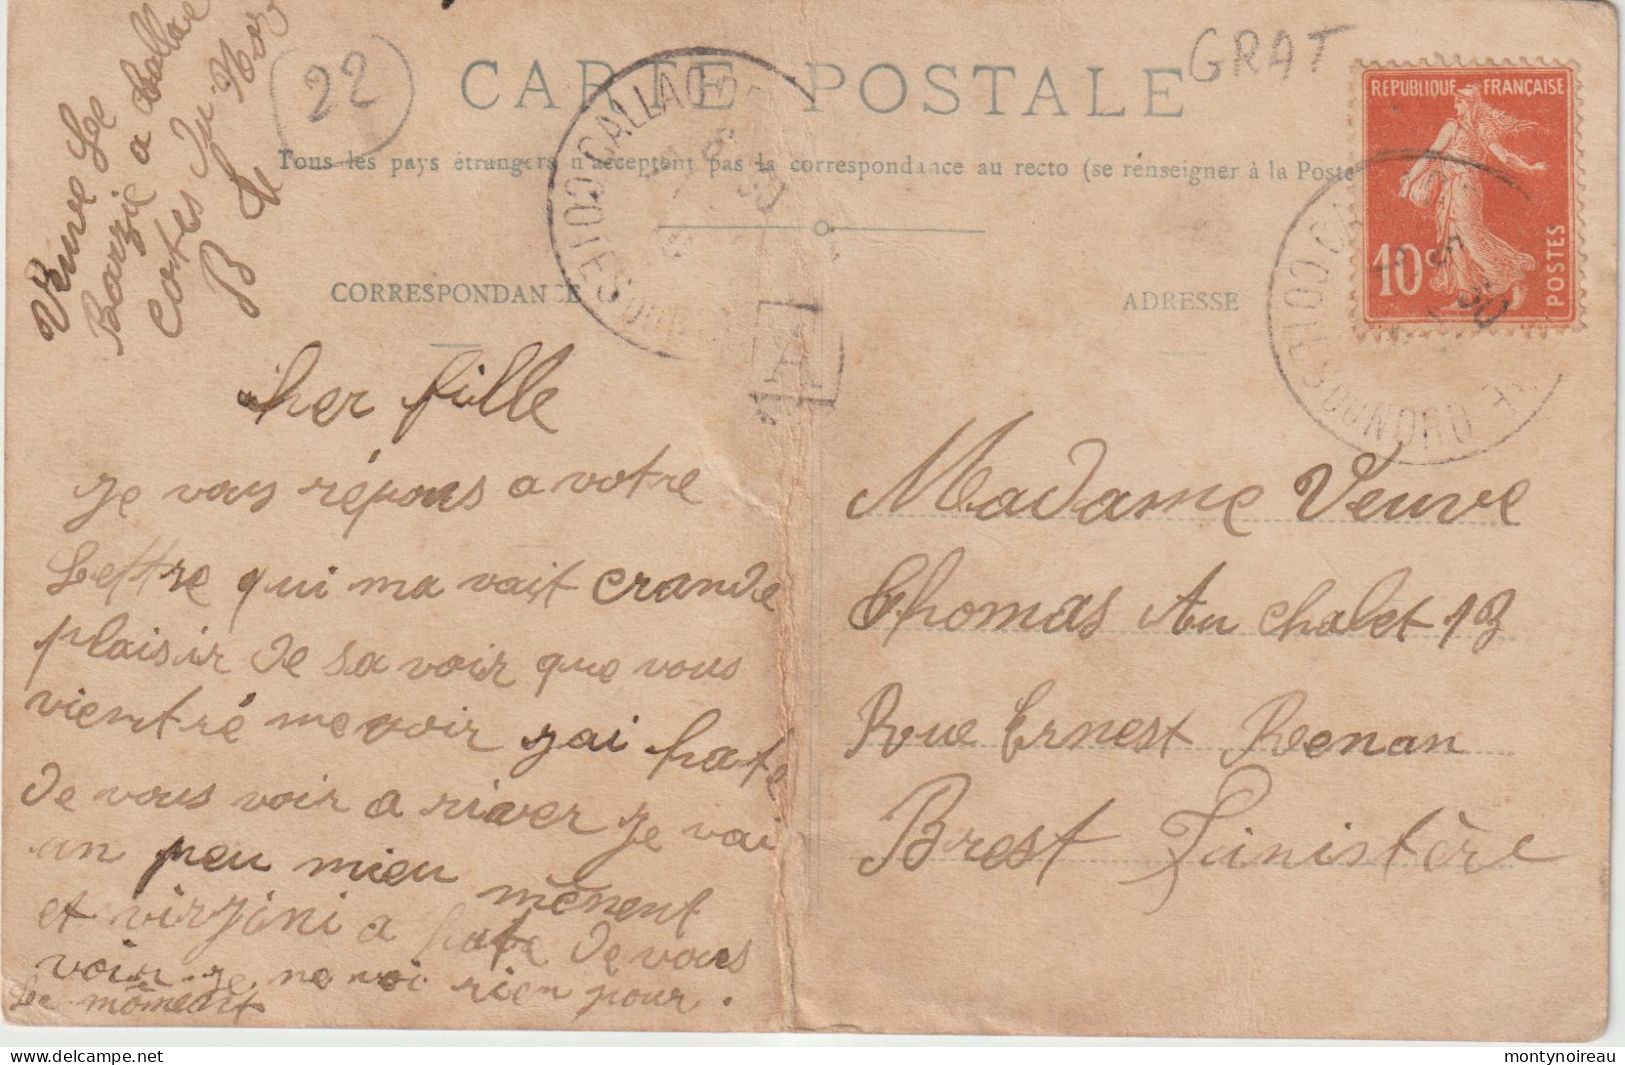 Veuve Le
Barzic a Callac
Cortes Du Nor
B Le B
22
CARTE POSTALE
GRAT
Tous les pays étrangers n'acceptent pas la correspondance au recto (se renseigner à la Poste
CALLAC
COTES DU NORD
A
REPUBLIQUE FRANÇAISE
10c
POSTES
COTES DU NORD
CORRESPONDANCE
ADRESSE
cher fille
je vous répons a votre
Lettre qui ma vait crande
plaisir de sa voir que vous
vientré me voir jai hate
de vous voir a river je vai
un peu mieu mênent
et virjini a hate de vous
voir je ne voi rien pour.
Le môment
Madame Veuve
Thomas Au chalet 13
Rue Ernest Renan
Brest Finistère
delcampe.net
montynoireau